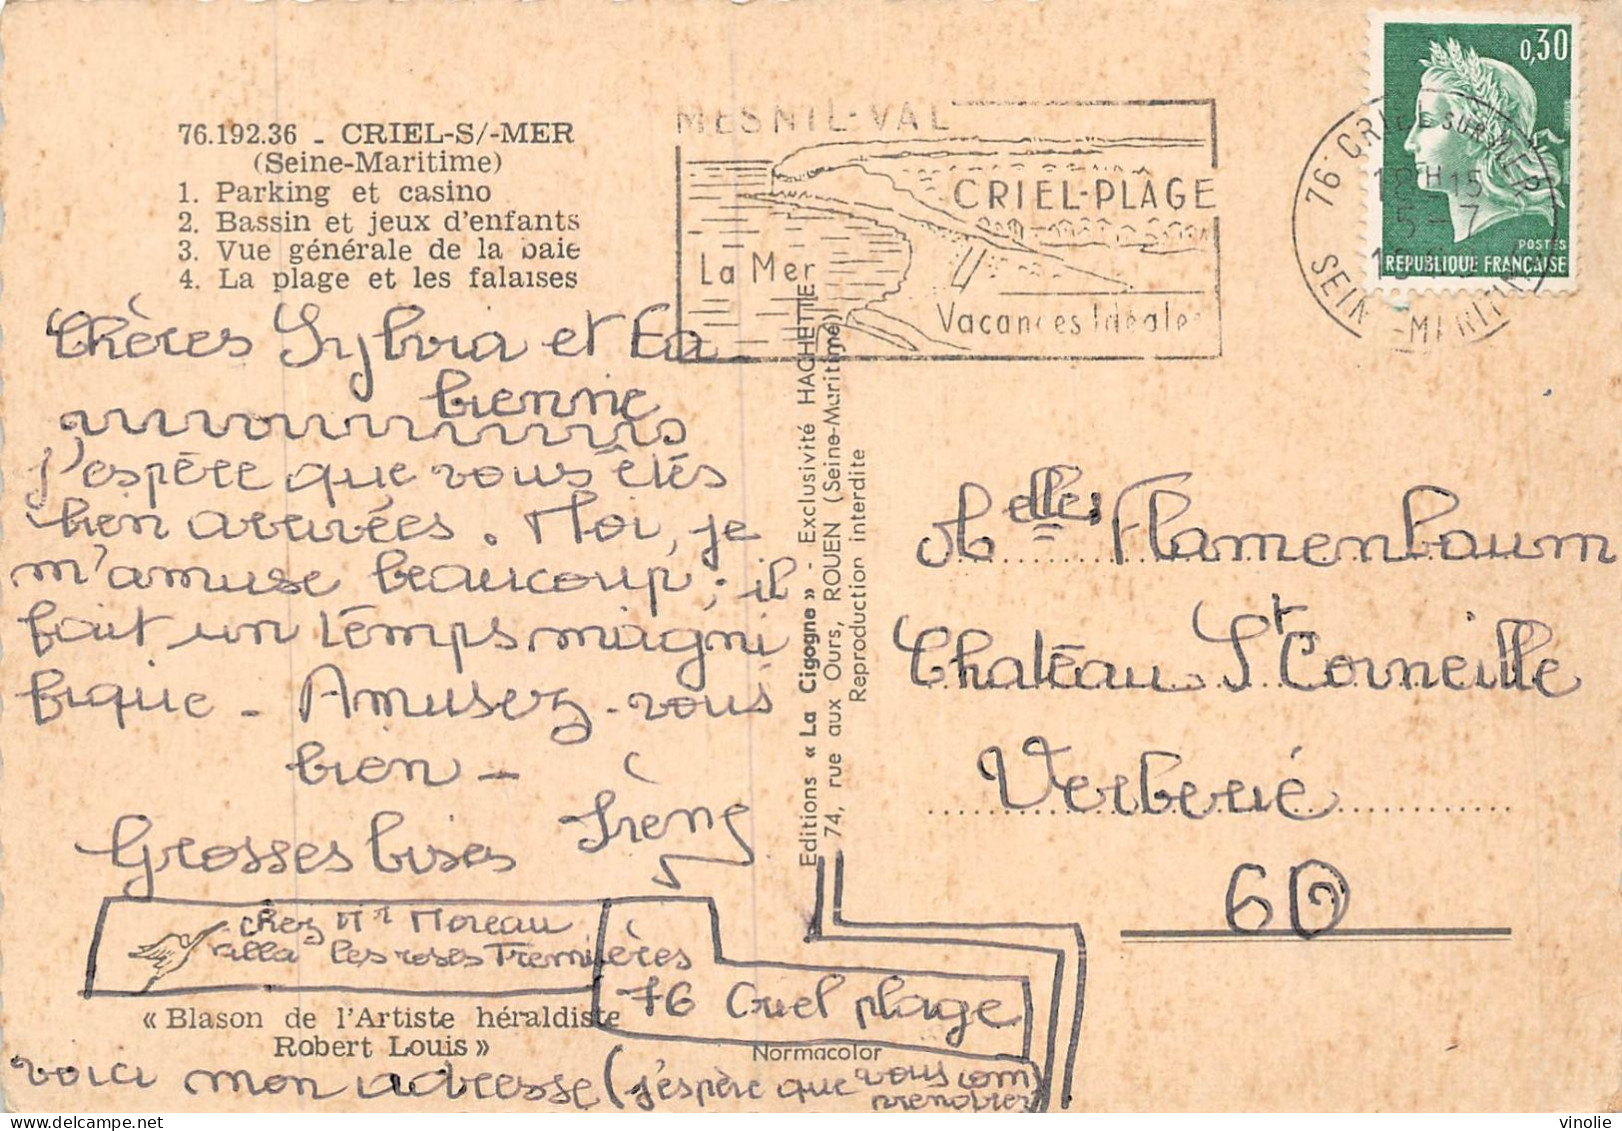 76.192.36 - CRIEL-S/-MER
(Seine-Maritime)
1. Parking et casino
2. Bassin et jeux d'enfants
3. Vue générale de la baie
4. La plage et les falaises
MESNIL-VAL
CRIEL-PLAGE
La Mer
Vacances Idéales
0,30
POSTES
REPUBLIQUE FRANÇAISE
76 CRIEL SUR MER
5 - 7
SEINE-MARITIME
Chères Sylvia et Fa
bienne
j'espère que vous êtes
bien arrivées. Moi, je
m'amuse beaucoup; il
fait un temps magni
fique - Amusez-vous
bien -
Grosses bises Irène
chez Mr Moreau
villa les roses Tremières
76 Criel plage
« Blason de l'Artiste héraldiste
Robert Louis »
Normacolor
voici mon adresse (j'espère que vous com
prendrez)
Editions « La Cigogne » - Exclusivité HACHETTE
74, rue aux Ours, ROUEN (Seine-Maritime)
Reproduction interdite
Melles Flamenbaum
Chatéau St Corneille
Verberie
60
vinolie